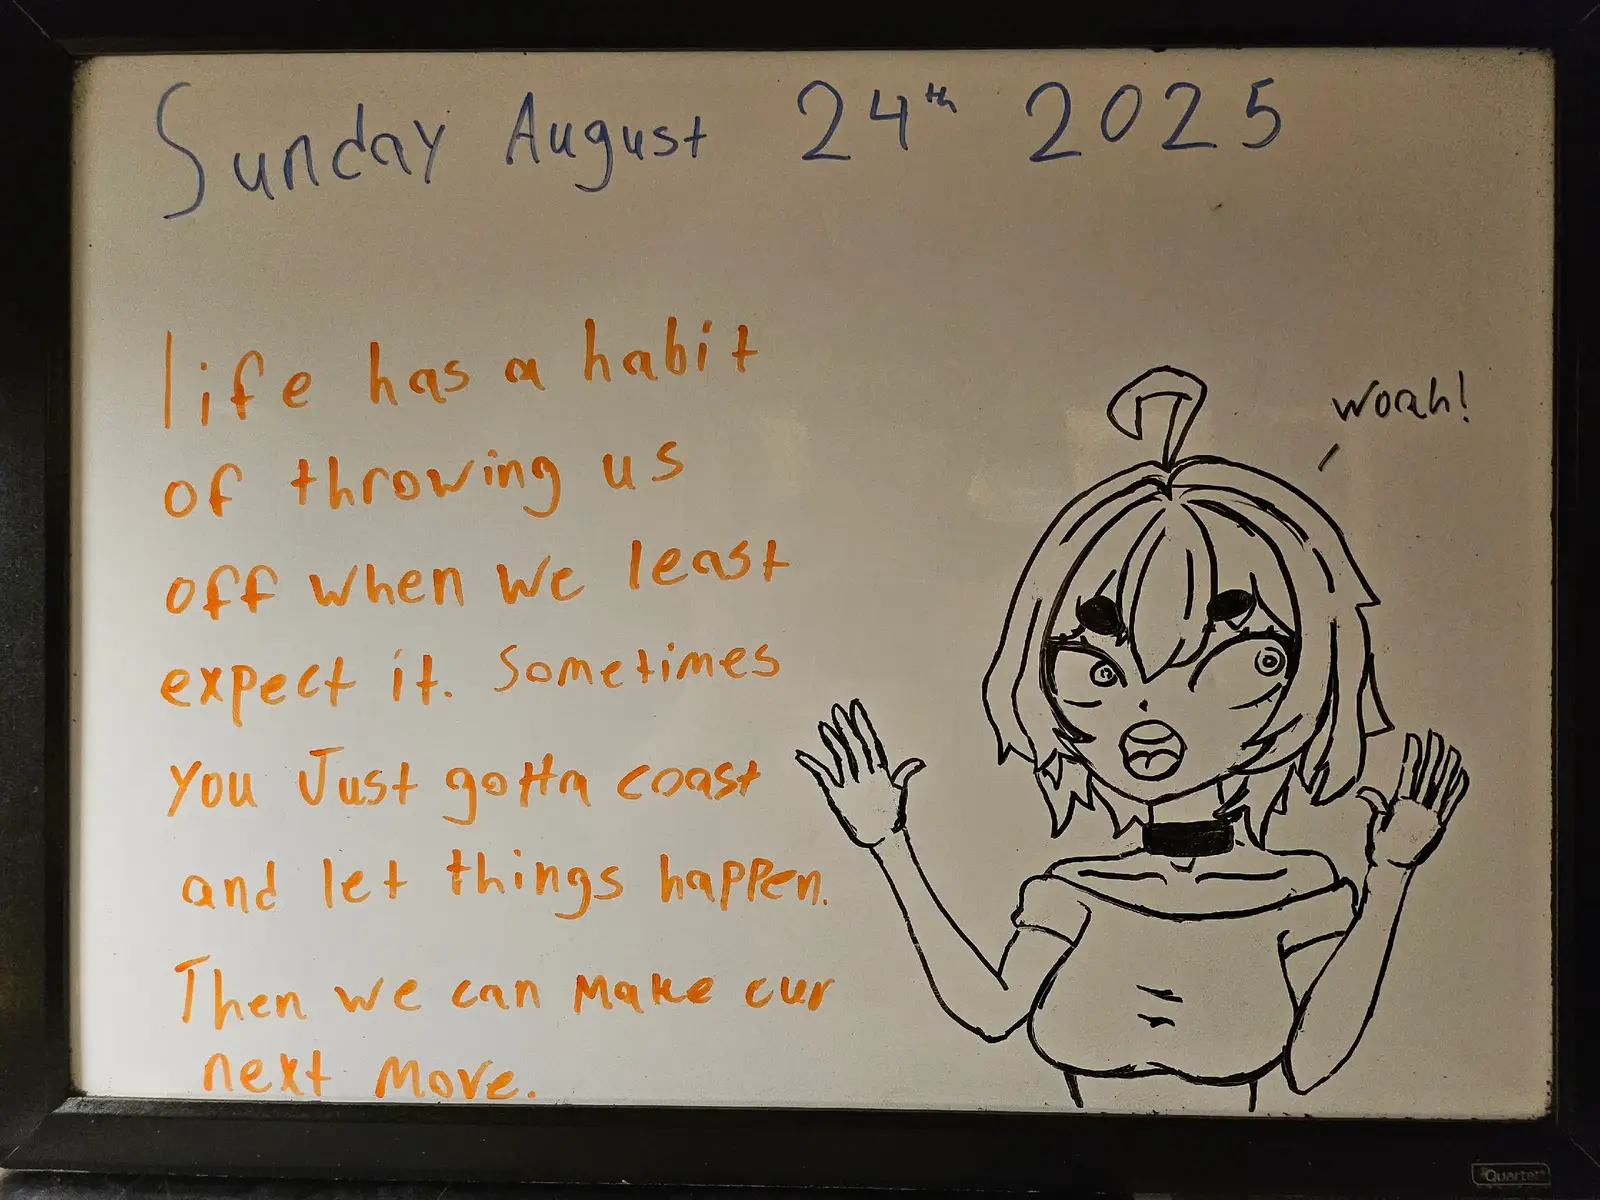 Sunday August 24th 2025
life has a habit
of throwing us
off when we least
expect it. Sometimes
you Just gotta coast
and let things happen.
Then we can make our
next move.
woah!
Quartet